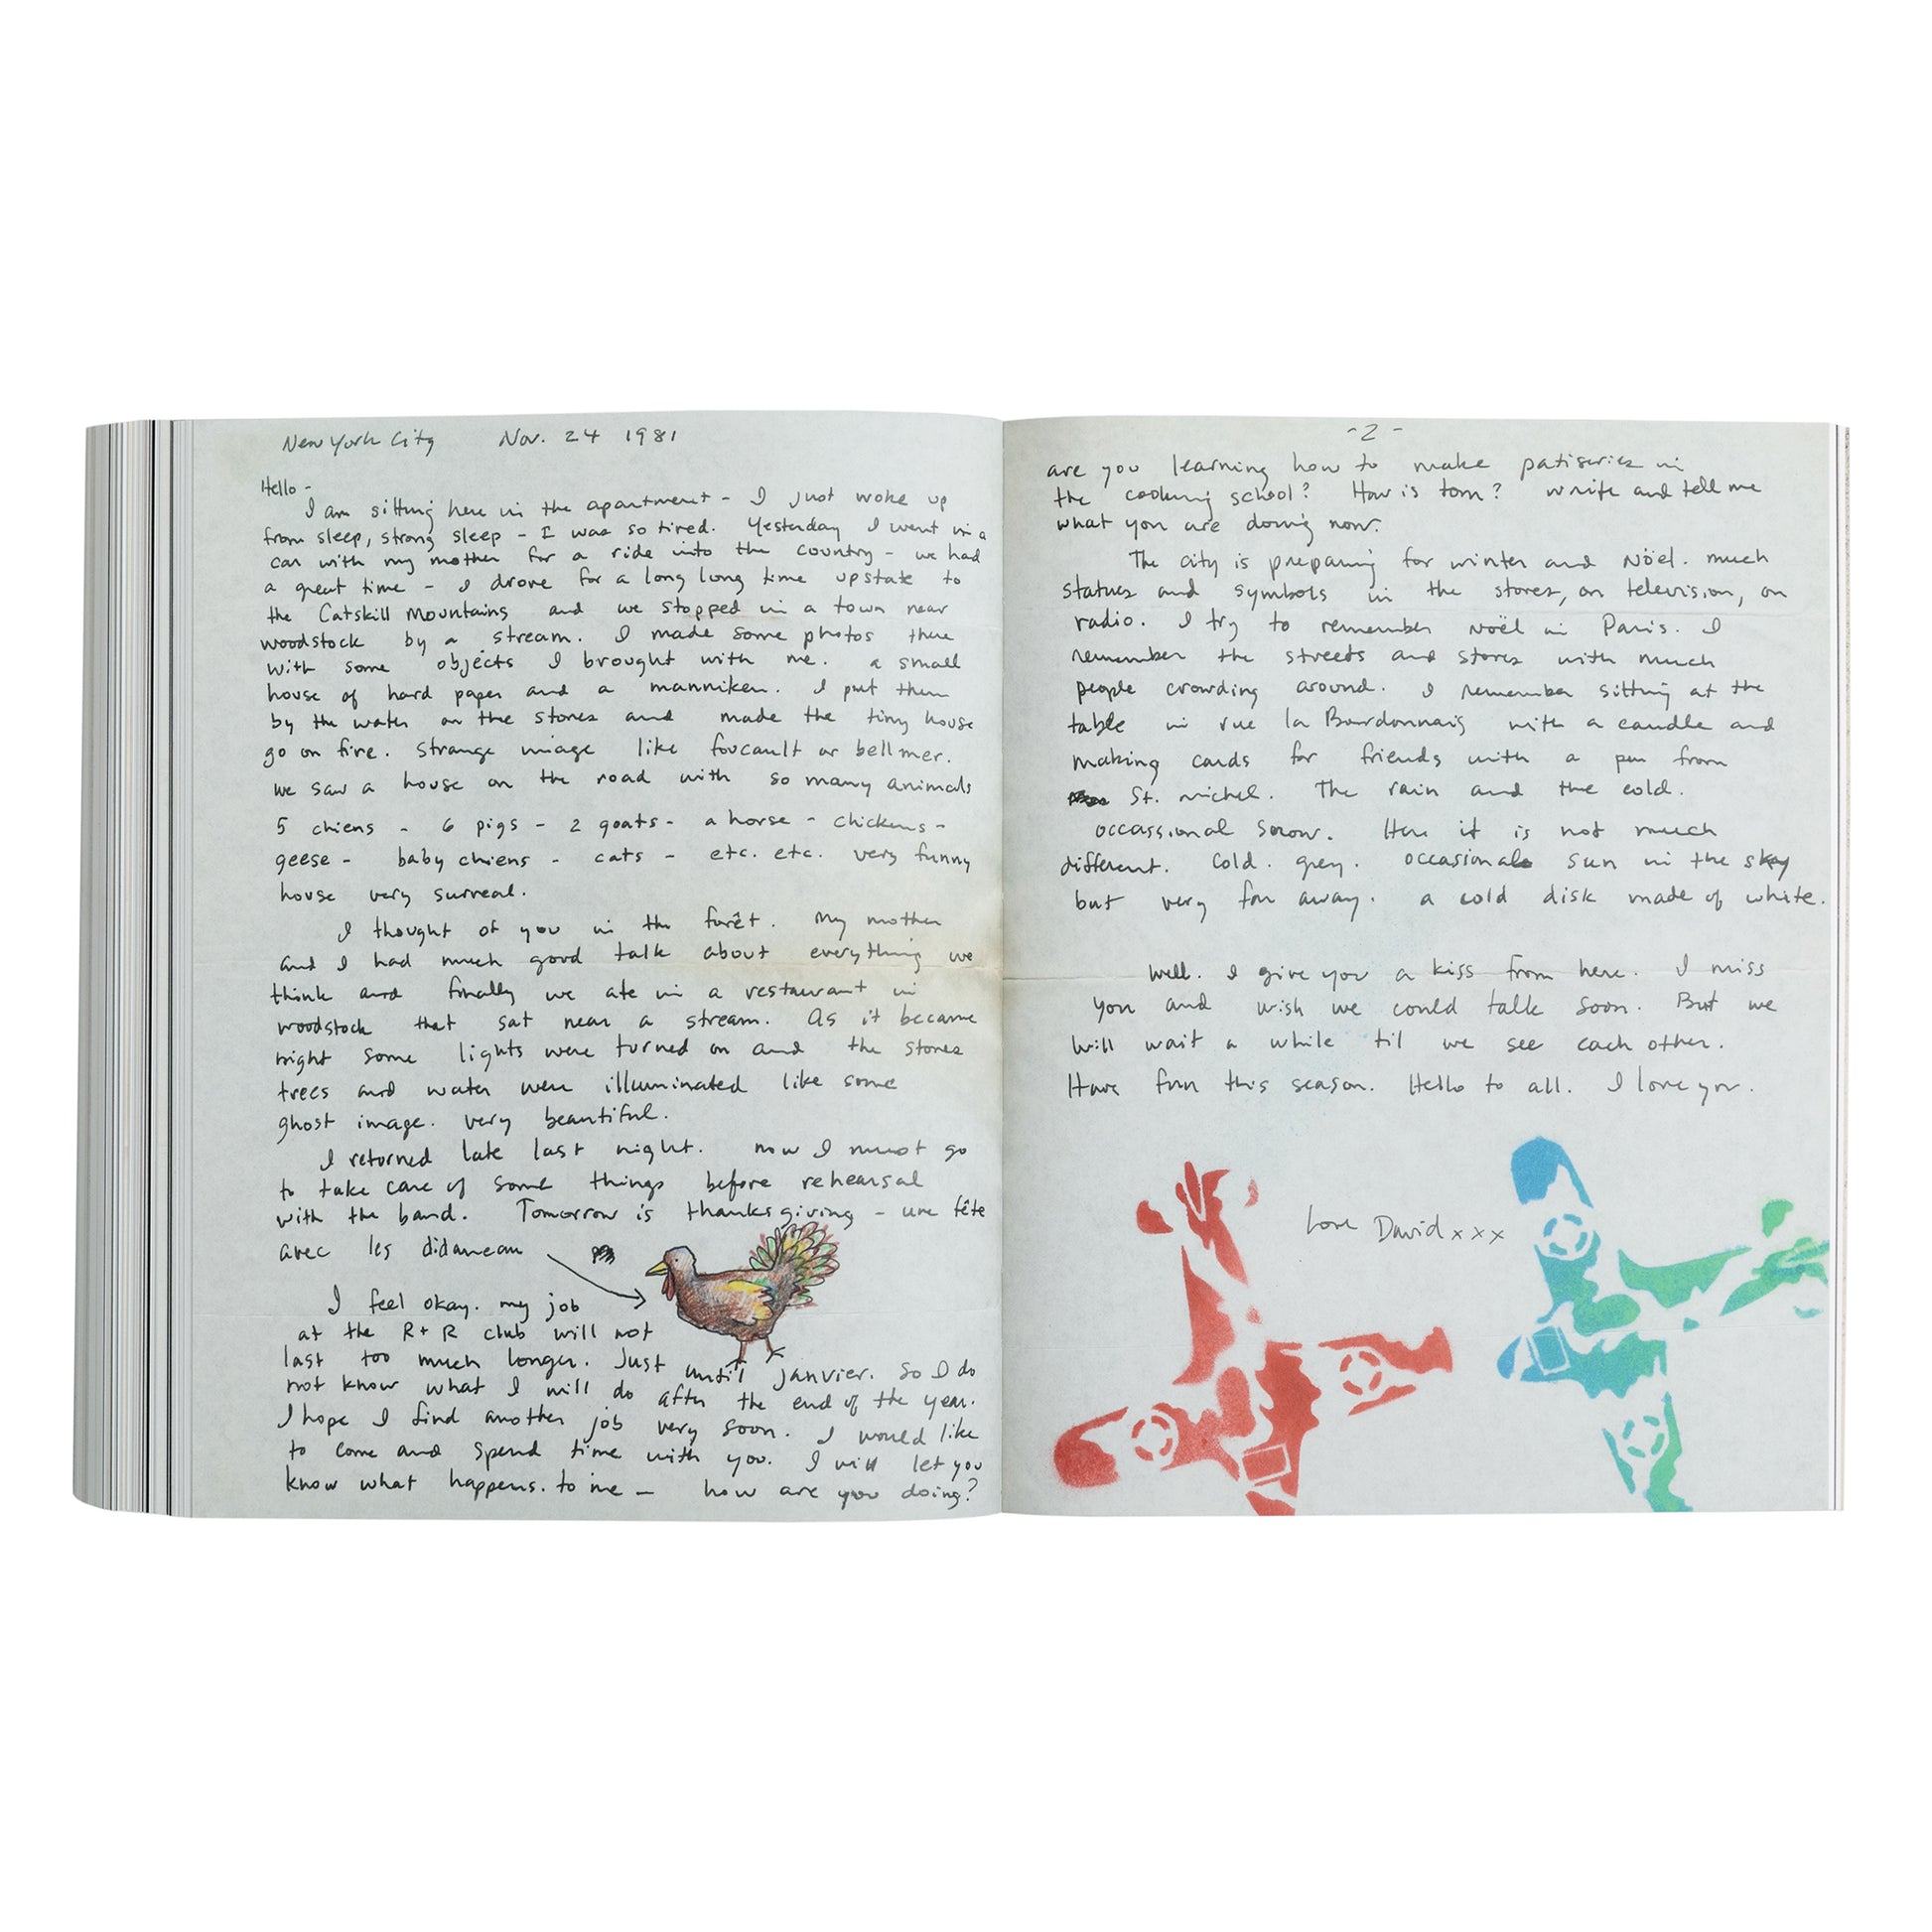 New York City Nov. 24 1981
Hello -
I am sitting here in the apartment - I just woke up
from sleep, strong sleep - I was so tired. Yesterday I went in a
car with my mother for a ride into the country - we had
a great time - I drove for a long long time upstate to
the Catskill Mountains and we stopped in a town near
woodstock by a stream. I made some photos there
with some objects I brought with me. a small
house of hard paper and a manniken. I put them
by the water on the stones and made the tiny house
go on fire. Strange image like foucault or bellmer.
we saw a house on the road with so many animals
5 chiens - 6 pigs - 2 goats - a horse - chickens -
geese - baby chiens - cats - etc. etc. very funny
house very surreal.
I thought of you in the forêt. My mother
and I had much good talk about everything we
think and finally we ate in a restaurant in
woodstock that sat near a stream. As it became
night some lights were turned on and the stones
trees and water were illuminated like some
ghost image. very beautiful.
I returned late last night. now I must go
to take care of some things before rehearsal
with the band. Tomorrow is thanksgiving - une fête
avec les
I feel okay. my job
at the R+R club will not
last too much longer. Just until janvier. So I do
not know what I will do after the end of the year.
I hope I find another job very soon. I would like
to come and spend time with you. I will let you
know what happens. to me - how are you doing?
-2-
are you learning how to make patiseries in
the cooking school? How is tom? write and tell me
what you are doing now.
The city is preparing for winter and Nöel. much
statues and symbols in the stores, on television, on
radio. I try to remember Noël in Paris. I
remember the streets and stores with much
people crowding around. I remember sitting at the
table in rue la Bourdonnais with a candle and
making cards for friends with a pen from
St. michel. The rain and the cold.
occassional snow. Here it is not much
different. Cold. grey. occasional sun in the sky
but very far away. a cold disk made of white.
Well. I give you a kiss from here. I miss
you and wish we could talk soon. But we
will wait a while til we see each other.
Have fun this season. Hello to all. I love you.
Love David xxx